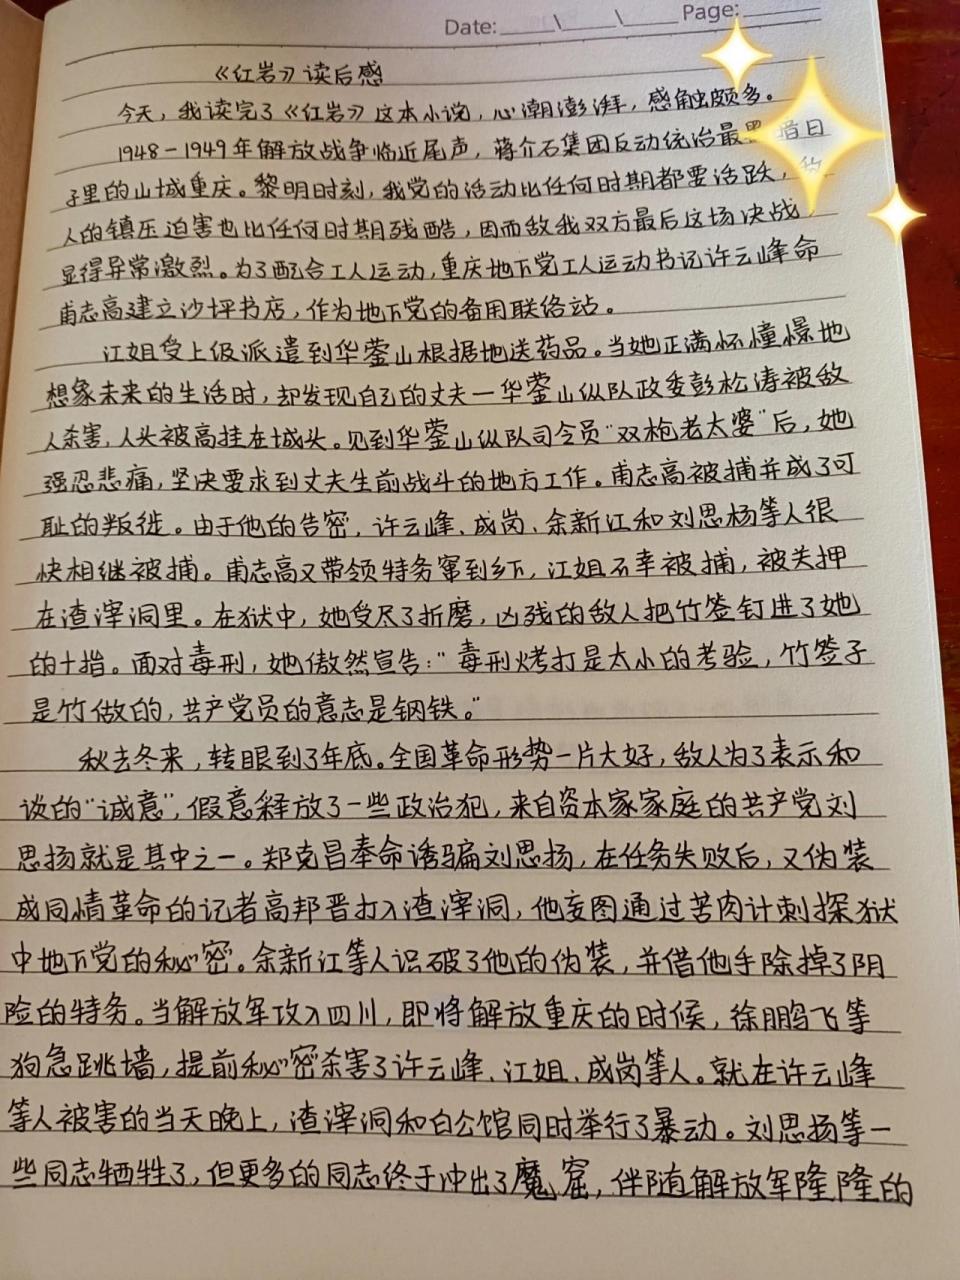 Date: \ \ Page:
《红岩》读后感
今天，我读完了《红岩》这本小说，心潮澎湃，感触颇多。
1948-1949年解放战争临近尾声，蒋介石集团反动统治最黑暗日
子里的山城重庆。黎明时刻，我党的活动比任何时期都要活跃，敌
人的镇压迫害也比任何时期残酷，因而敌我双方最后这场决战，
显得异常激烈。为了配合工人运动，重庆地下党工人运动书记许云峰命
甫志高建立沙坪书店，作为地下党的备用联络站。
江姐受上级派遣到华蓥山根据地送药品。当她正满怀憧憬地
想象未来的生活时，却发现自己的丈夫一华蓥山纵队政委彭松涛被敌
人杀害，人头被高挂在城头。见到华蓥山纵队司令员"双枪老太婆"后，她
强忍悲痛，坚决要求到丈夫生前战斗的地方工作。甫志高被捕并成了可
耻的叛徒。由于他的告密，许云峰、成岗、余新江和刘思杨等人很
快相继被捕。甫志高又带领特务窜到乡下，江姐不幸被捕，被关押
在渣滓洞里。在狱中，她受尽了折磨，凶残的敌人把竹签钉进了她
的十指。面对毒刑，她傲然宣告："毒刑烤打是太小的考验，竹签子
是竹做的，共产党员的意志是钢铁。"
秋去冬来，转眼到了年底。全国革命形势一片大好，敌人为了表示和
谈的"诚意"，假意释放了一些政治犯，来自资本家家庭的共产党刘
思扬就是其中之一。郑克昌奉命诱骗刘思扬，在任务失败后，又伪装
成同情革命的记者高邦晋打入渣滓洞，他妄图通过苦肉计刺探狱
中地下党的秘密。余新江等人识破了他的伪装，并借他手除掉了阴
险的特务。当解放军攻入四川，即将解放重庆的时候，徐鹏飞等
狗急跳墙，提前秘密杀害了许云峰、江姐、成岗等人。就在许云峰
等人被害的当天晚上，渣滓洞和白公馆同时举行了暴动。刘思扬等一
些同志牺牲了，但更多的同志终于冲出了魔窟，伴随解放军隆隆的